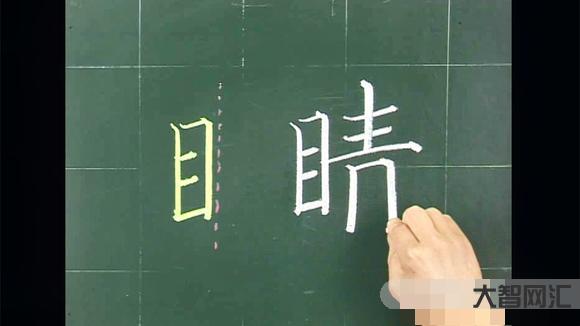 目 睛
大智网汇